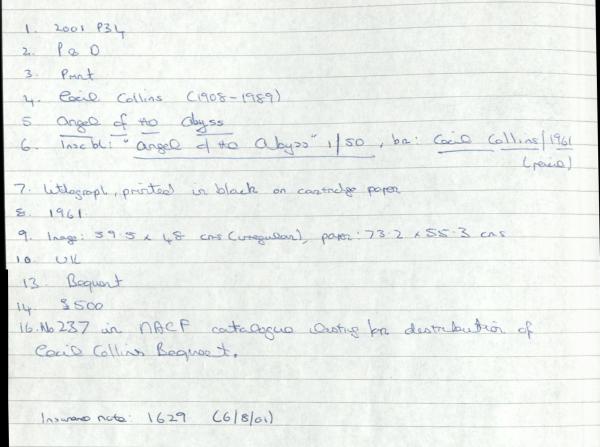 1. 2001 P34
2. P & D
3. Print
4. Cecil Collins (1908-1989)
5 Angel of the Abyss
6. Inscbl: "Angel of the Abyss" 1/50, br: Cecil Collins/1961
(pencil)
7. lithograph, printed in black on cartridge paper
8. 1961
9. Image: 59.5 x 48 cms (irregular), paper: 73.2 x 55.3 cms
10. UK
13. Bequest
14 £500
16. No 237 in NACF catalogue listing for distribution of
Cecil Collins Bequest.
Insurance note: 1629 (6/8/01)